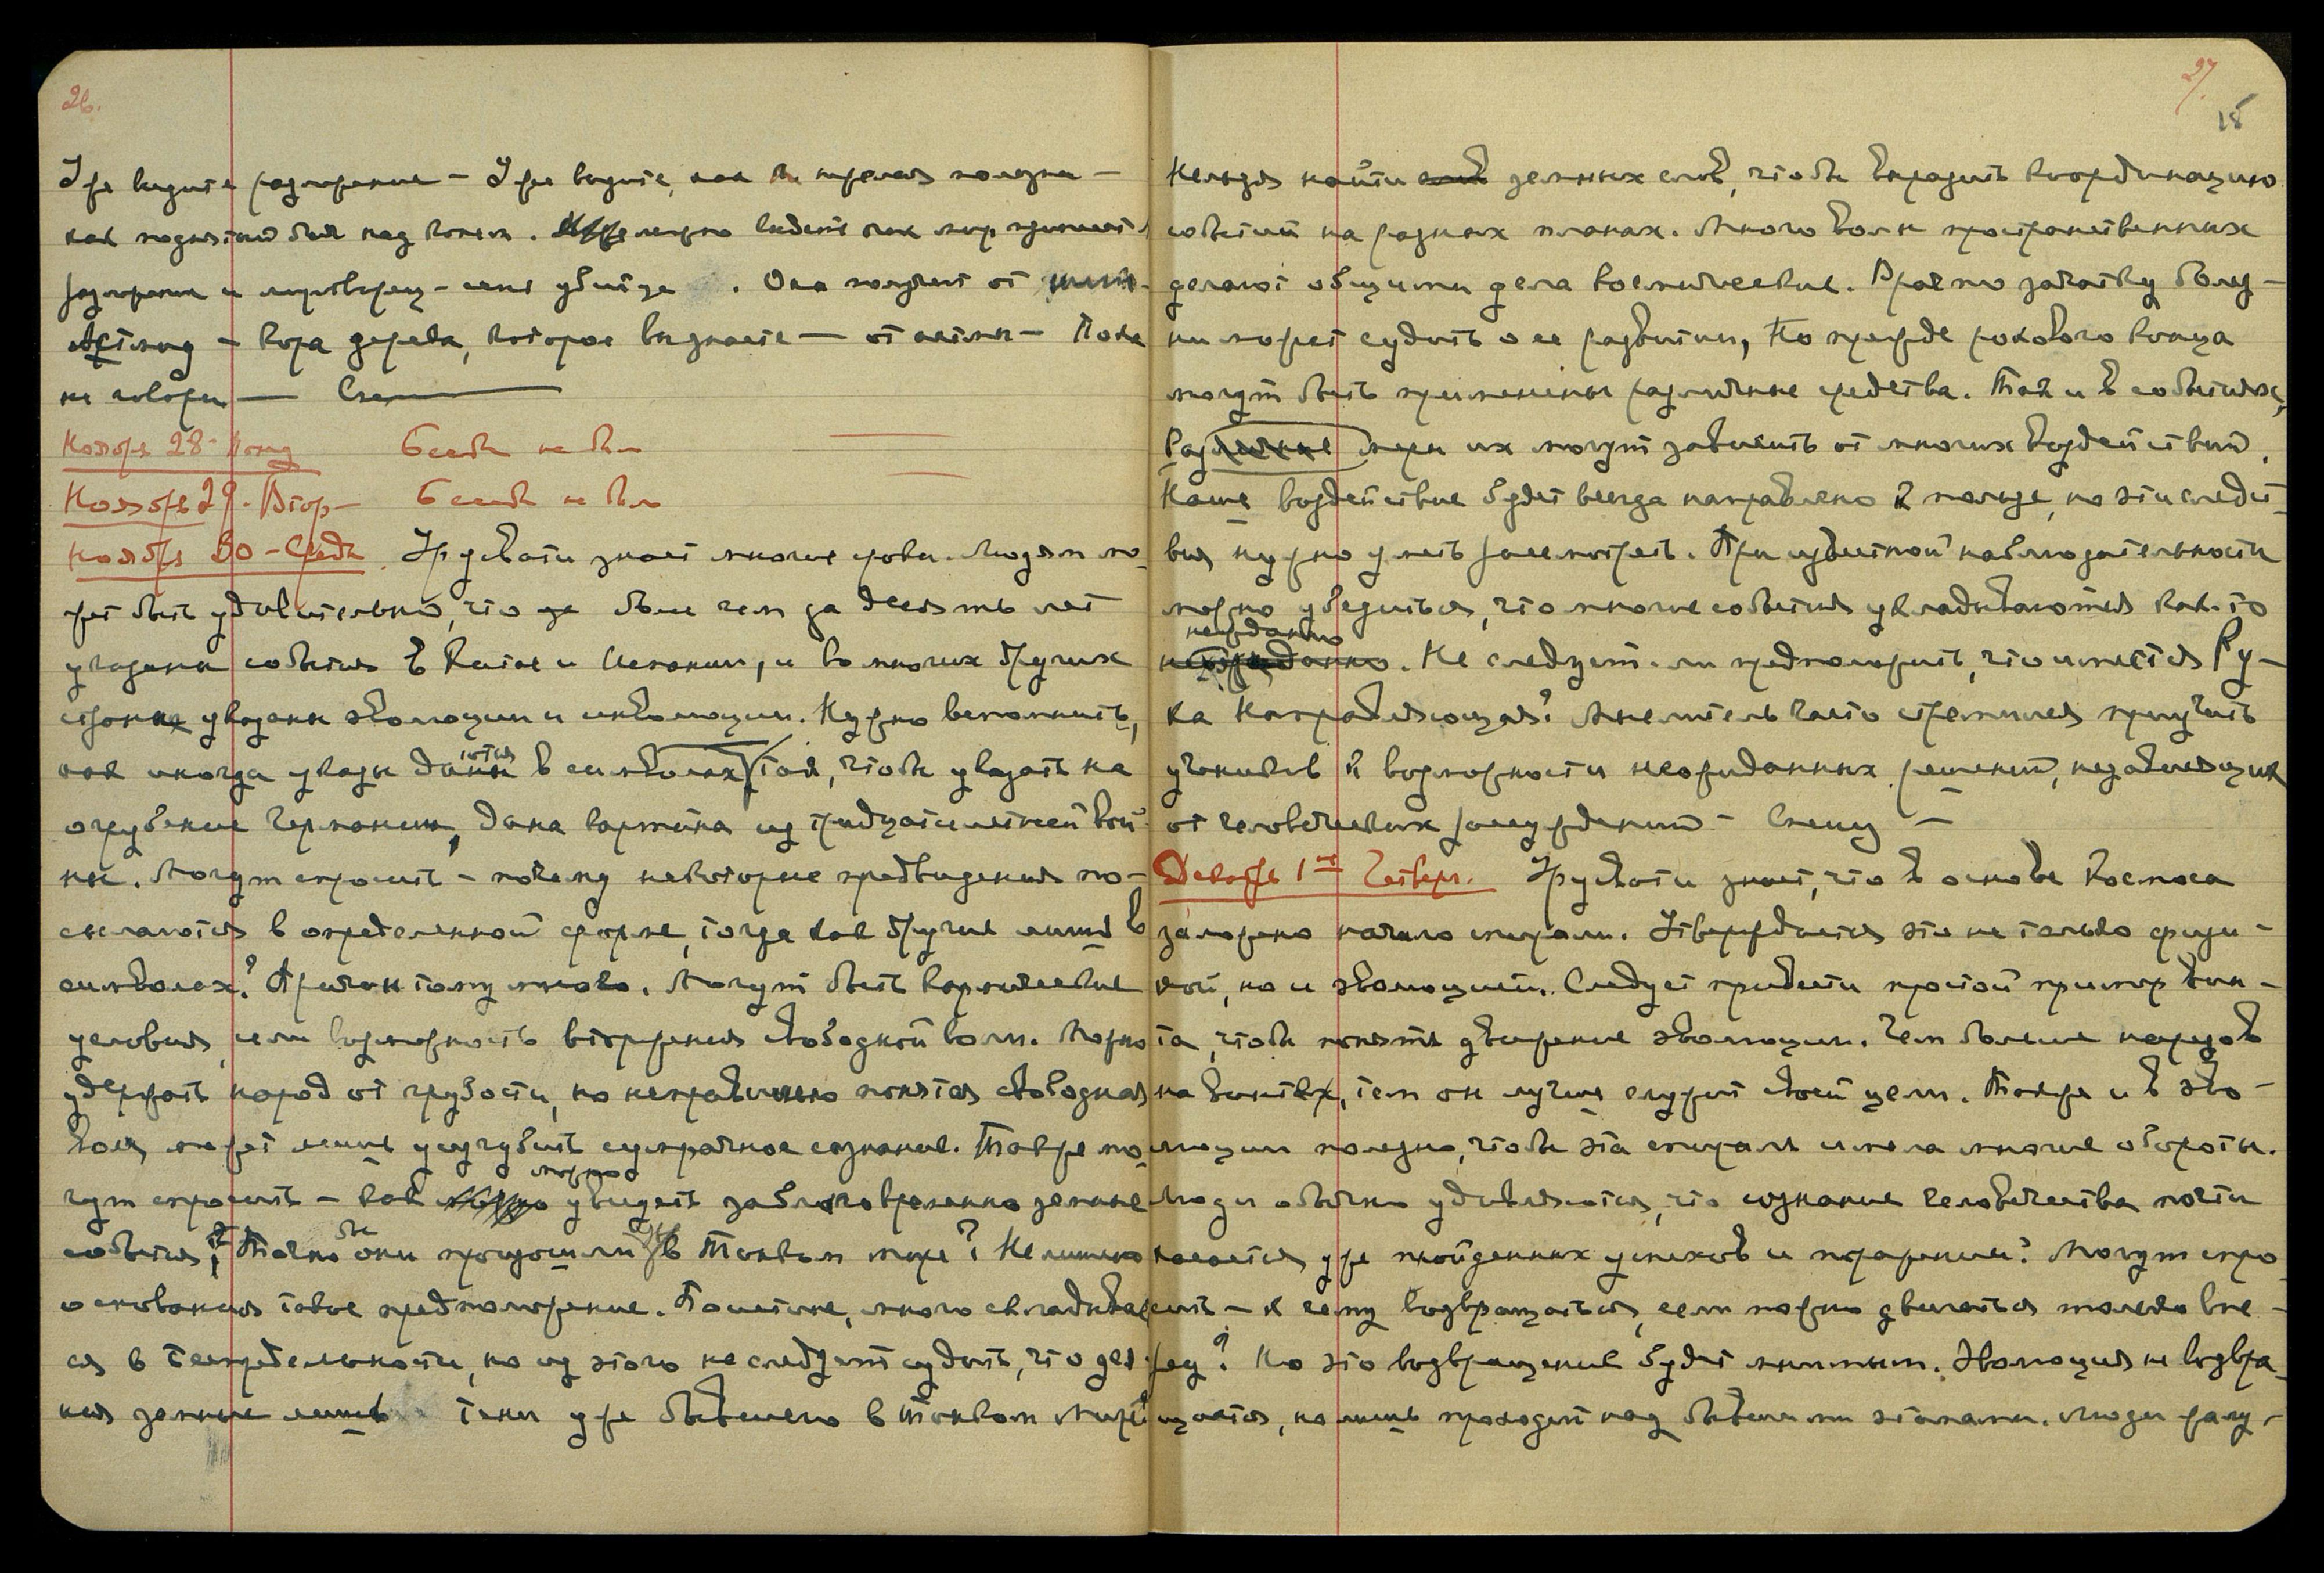 26.
Уже видите разложение — Уже видите, как
как поднятый был над конем. можно видеть как мир
разложение и миротворец — . Она получит от
— кора дерева, которое вы знаете — от астмы — Пока
не говори — Спешу
Ноябрь 28 - Понед Беседы не было
Ноябрь 29. Втор — Беседы не было
Ноябрь 30 — Среда. Урусвати знает многие сроки. Людям мо-
жет быть удивительно, что уже более чем за десять лет
указаны события в Китае и Испании, и во многих других
странах указаны эволюции и инволюции. Нужно вспомнить,
как иногда указы даются в символах, так, чтобы указать на
огрубение Германии, дана картина из тридцатилетней вой-
ны. Могут спросить — почему некоторые предвидения по-
сылаются в определенной форме, тогда как другие лишь в
символах? Причин тому много. Могут быть кармические
условия, или возможность вторжения свободной воли. Можно
удержать народ от грубости, но неправильно понятая свободная
воля может лишь усугубить сумрачное сознание. Также мо-
гут спросить — как можно увидеть заблаговременно земные
события? Точно бы они произошли уже в Тонком мире? Не лишено
основания такое предположение. Поистине, много складывает-
ся в Беспредельности, но из этого не следует судить, что дея-
ния земные лишь тени уже бывшего в Тонком Мире.
27.
15
Нельзя найти земных слов, чтобы выразить координацию
событий на разных планах. Много волн пространственных
делают общими дела космические. Врач по зачатку болез-
ни может судить о ее развитии, Но прежде рокового конца
могут быть применены различные средства. Так и в событиях,
меры их могут зависить от многих воздействий.
Наше воздействие будет всегда направлено к пользе, но эти следст-
вия нужно уметь рассмотреть. При известной наблюдательности
можно убедиться, что многие события укладываются как-то
нежданно
. Не следует-ли предположить, что имеется Ру-
ка Направляющая? Мыслитель часто стремился приучить
учеников к возможности неожиданных решений, независящих
от человеческих рассуждений — Спешу —
Декабрь 1ое Четверг. Урусвати знает, что в основе Космоса
заложено начало спирали. Утверждается это не только физи-
кой, но и эволюцией. Следует привести простой пример вин-
та, чтобы понять движение эволюции. Чем больше нарезов
на винтах, тем он лучше служит своей цели. Также и в эво-
люции полезно, чтобы эта спираль имела многие обороты.
Люди обычно удивляются, что сознание человечества почти
касается уже пройденных успехов и поражений? Могут спро-
сить — к чему возвращаться, если можно двигаться только впе-
ред? Но это возвращение будет мнимым. Эволюция не возвра-
щается, но лишь проходит над бывшими этапами. Люди